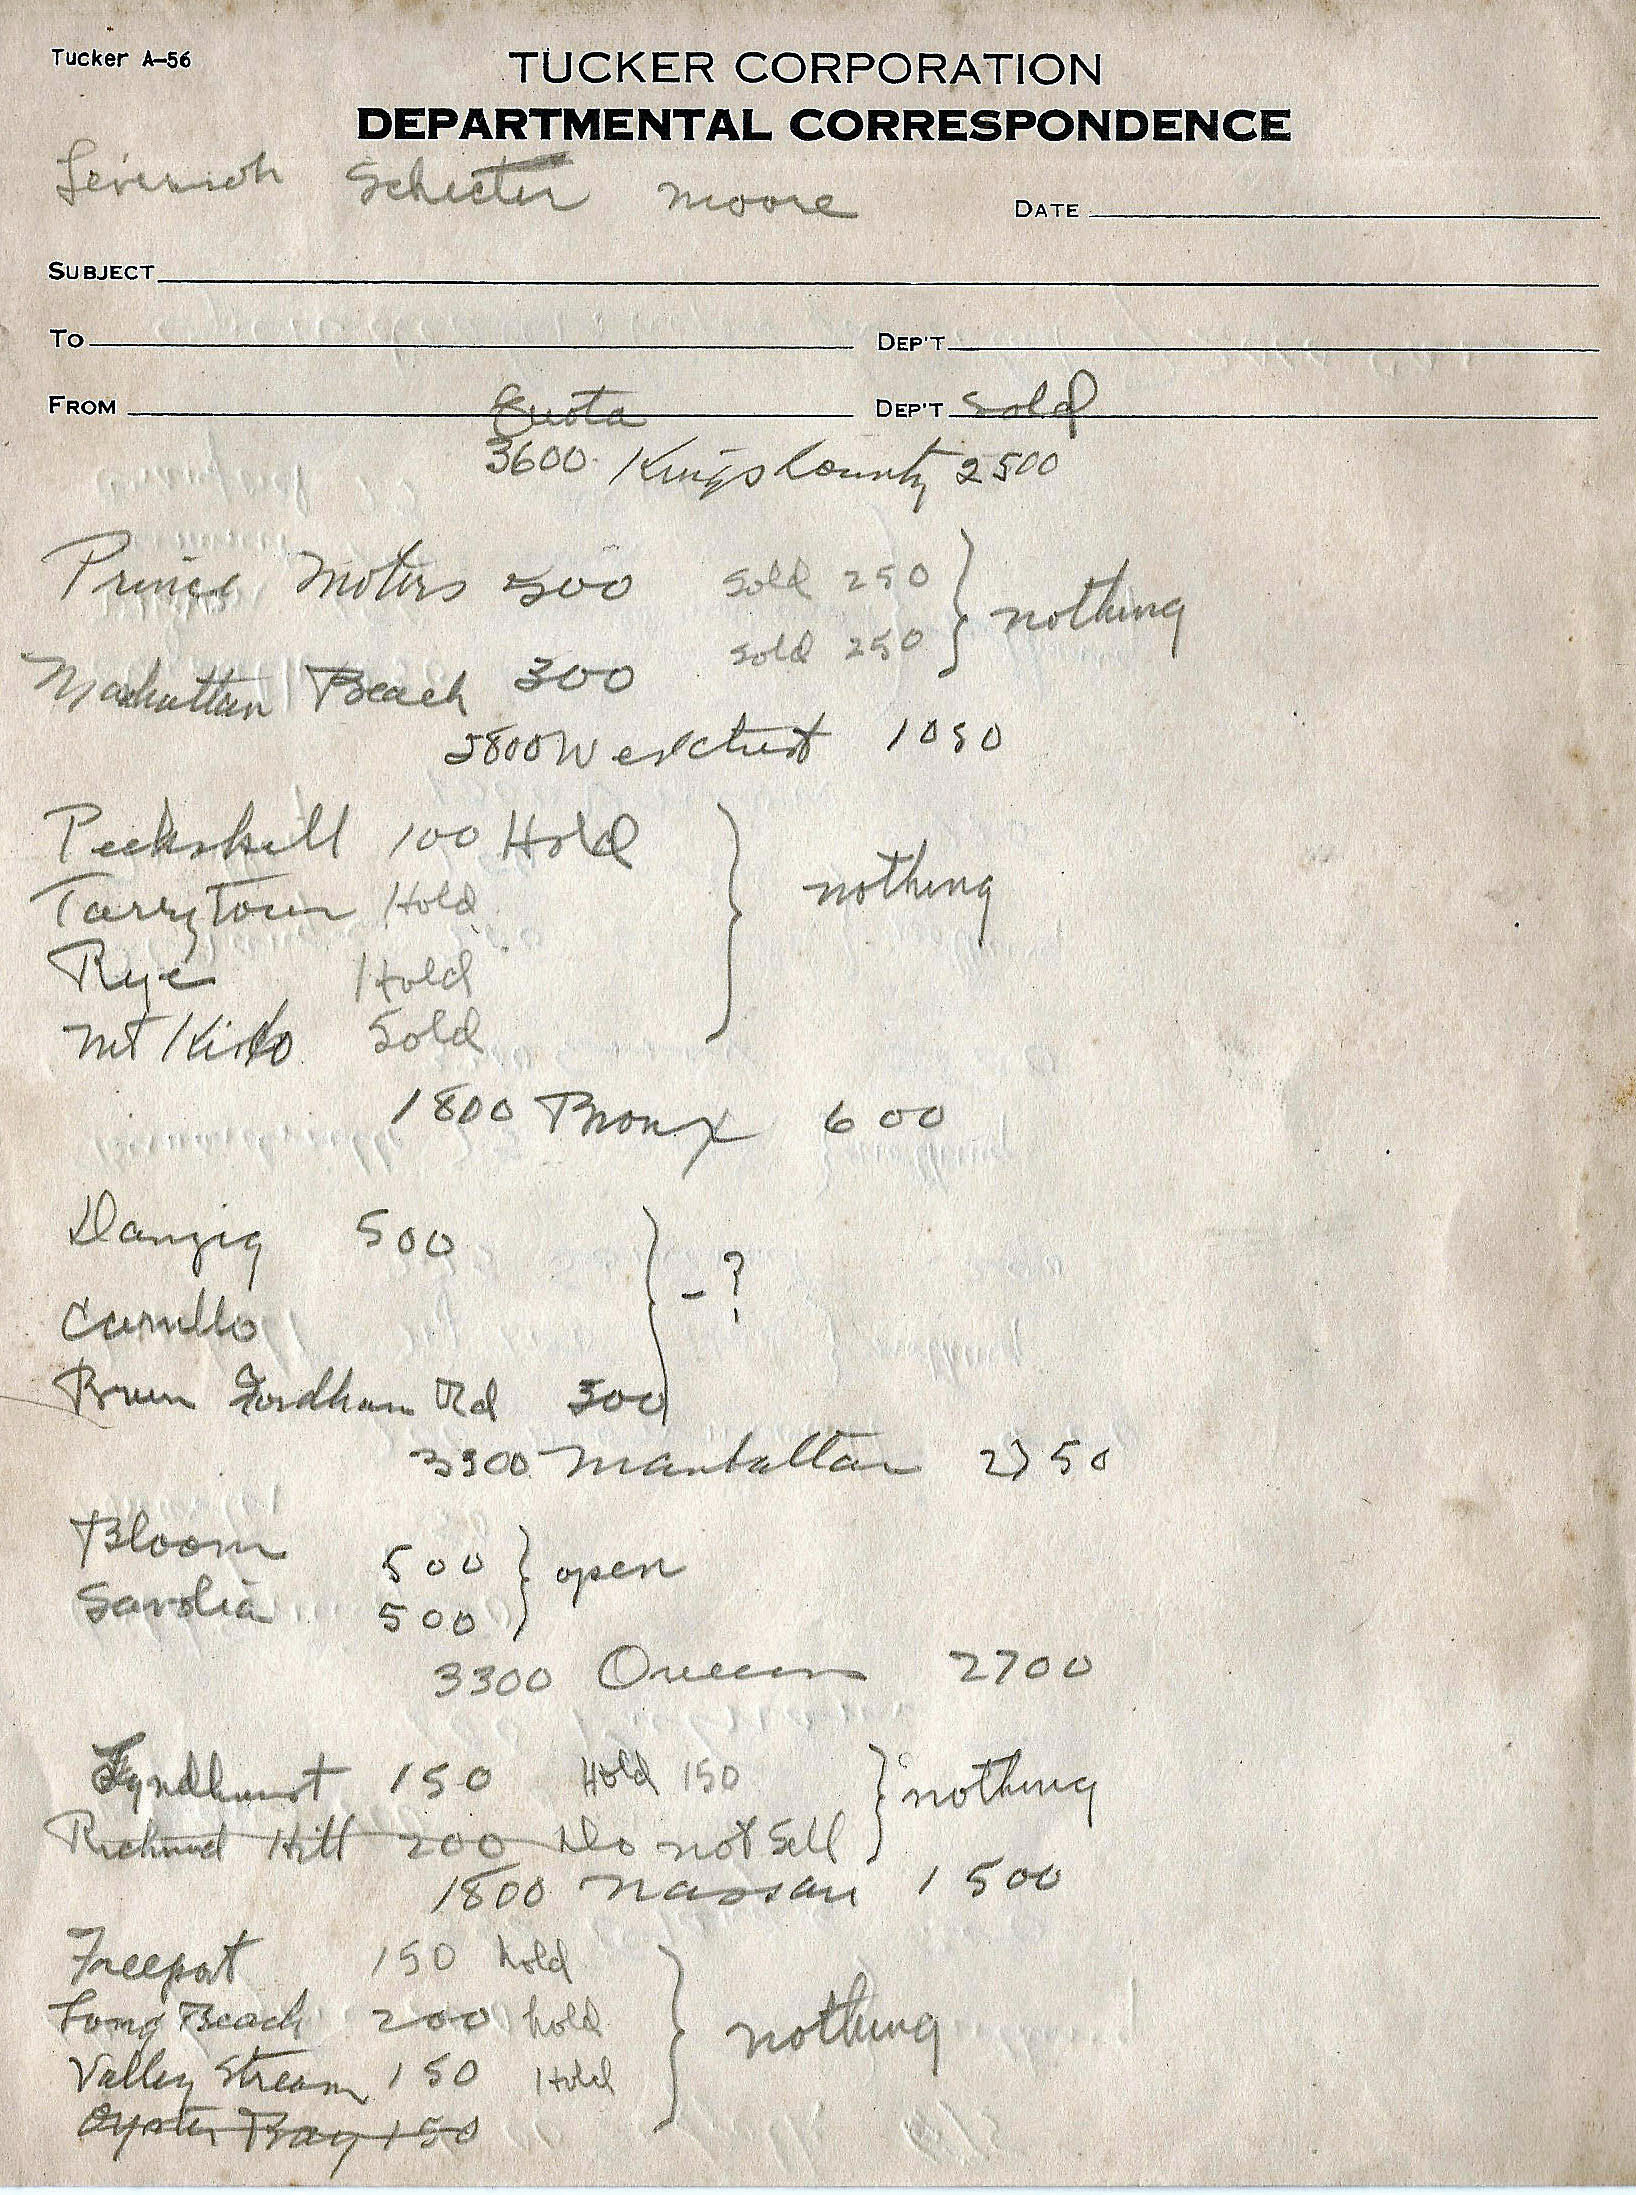 Tucker A-56
TUCKER CORPORATION
DEPARTMENTAL CORRESPONDENCE
Schecter Moore
DATE
SUBJECT
TO DEP'T
FROM Quota DEP'T Sold
3600 Kings County 2500
Prince Motors 500 Sold 250 } nothing
Manhattan Beach 300 Sold 250
Westchest 1050
Peekskill 100 Hold } nothing
Tarrytown Hold
Rye Hold
Mt Kisko Sold
1800 Bronx 600
Danzig 500 } - ?
Carullo
Fordham Rd 300
3900 Manhattan 2750
Bloom 500 } open
Savoia 500
3300 Queens 2700
Lyndhurst 150 Hold 150 } nothing
Richmond Hill 200 Do not Sell
1800 Nassau 1500
Freeport 150 hold } nothing
Long Beach 200 hold
Valley Stream 150 Hold
Oyster Bay 150